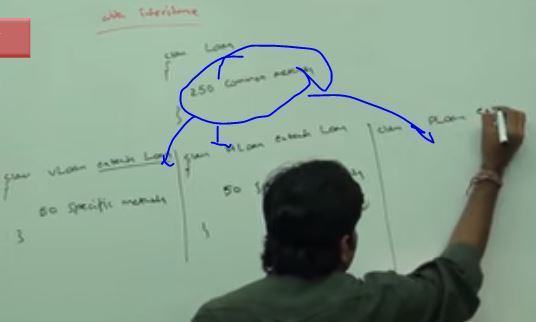 with Inheritance
class Loan
{
250 common methods
}
class VLoan extends Loan
{
50 Specific methods
}
class HLoan extends Loan
{
50
}
class PLoan